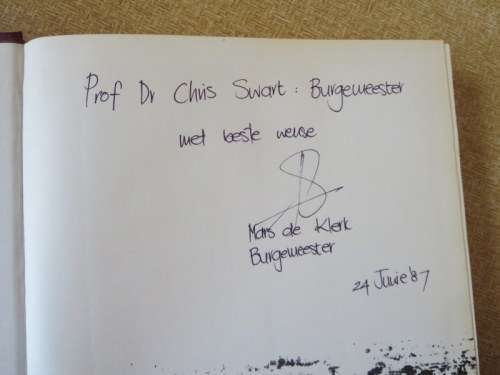 Prof Dr Chris Swart : Burgemeester
met beste wense
Mars de Klerk
Burgemeester
24 Junie '87